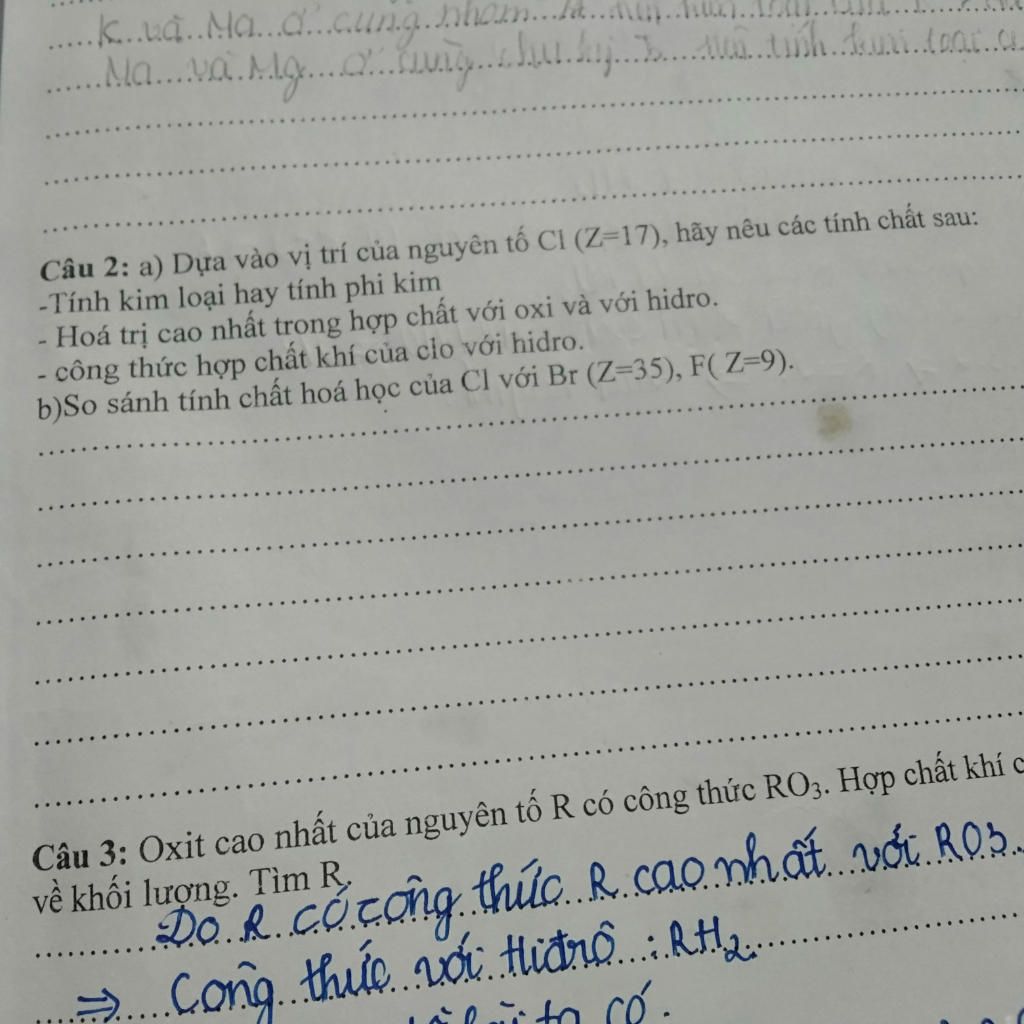 K và Na ở cùng nhóm
Na và Mg ở cùng chu kỳ 3 tính kim loại
Câu 2: a) Dựa vào vị trí của nguyên tố Cl (Z=17), hãy nêu các tính chất sau:
-Tính kim loại hay tính phi kim
- Hoá trị cao nhất trong hợp chất với oxi và với hidro.
- công thức hợp chất khí của clo với hidro.
b)So sánh tính chất hoá học của Cl với Br (Z=35), F( Z=9).
Câu 3: Oxit cao nhất của nguyên tố R có công thức RO₃. Hợp chất khí
về khối lượng. Tìm R.
Do R có công thức R cao nhất với RO3.
⇒ Công thức với Hiđrô : RH₂
ta có.